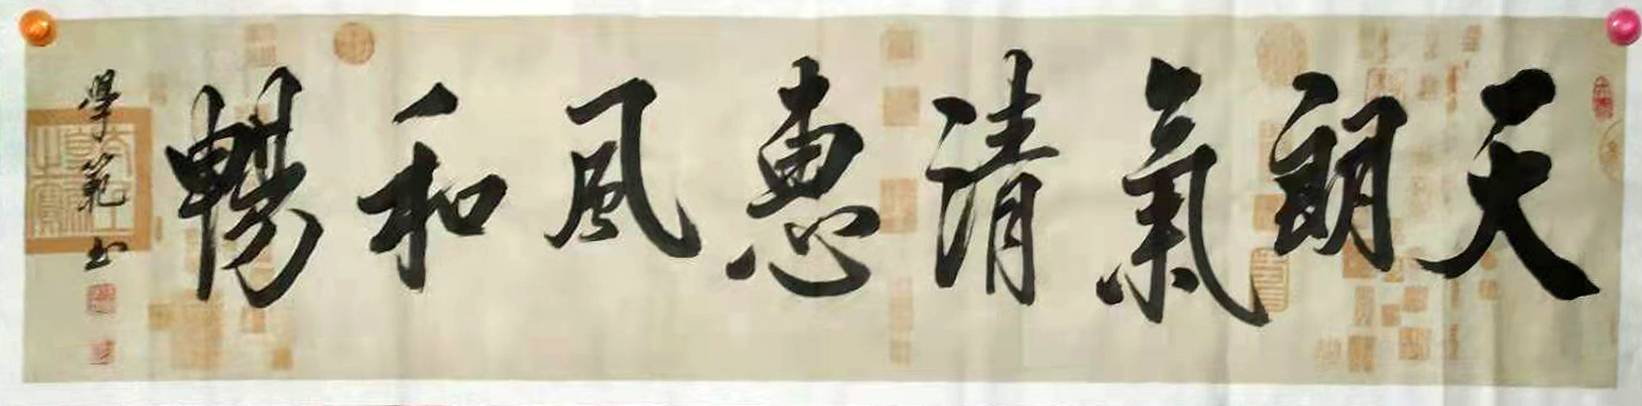 天朗氣清惠風和暢
學範书